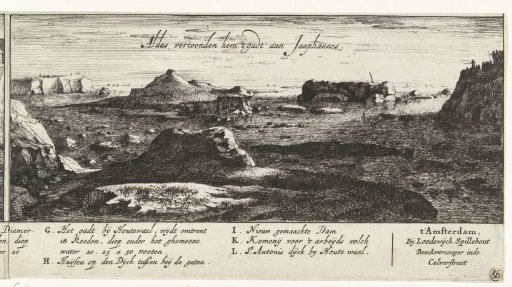 Aldus vertoonden hem 't gadt dan Jaaphannes
Diemer-
en, diep
er 20
G. Het gadt by Houtewael, wijdt omtrent
18 Roeden, diep onder het ghemeene
water 20. 25 a 30 voeten.
H. Huijsen op den Dyck tussen beij de gaten.
I. Nieuw gemaackte Dam
K. Komeny voor 't arbeyds volck
L. S. Antonis dijck by Houte wael.
t'Amsterdam,
By Loodewijck Spillebout
Boeckvercooper inde
Calverstraet.